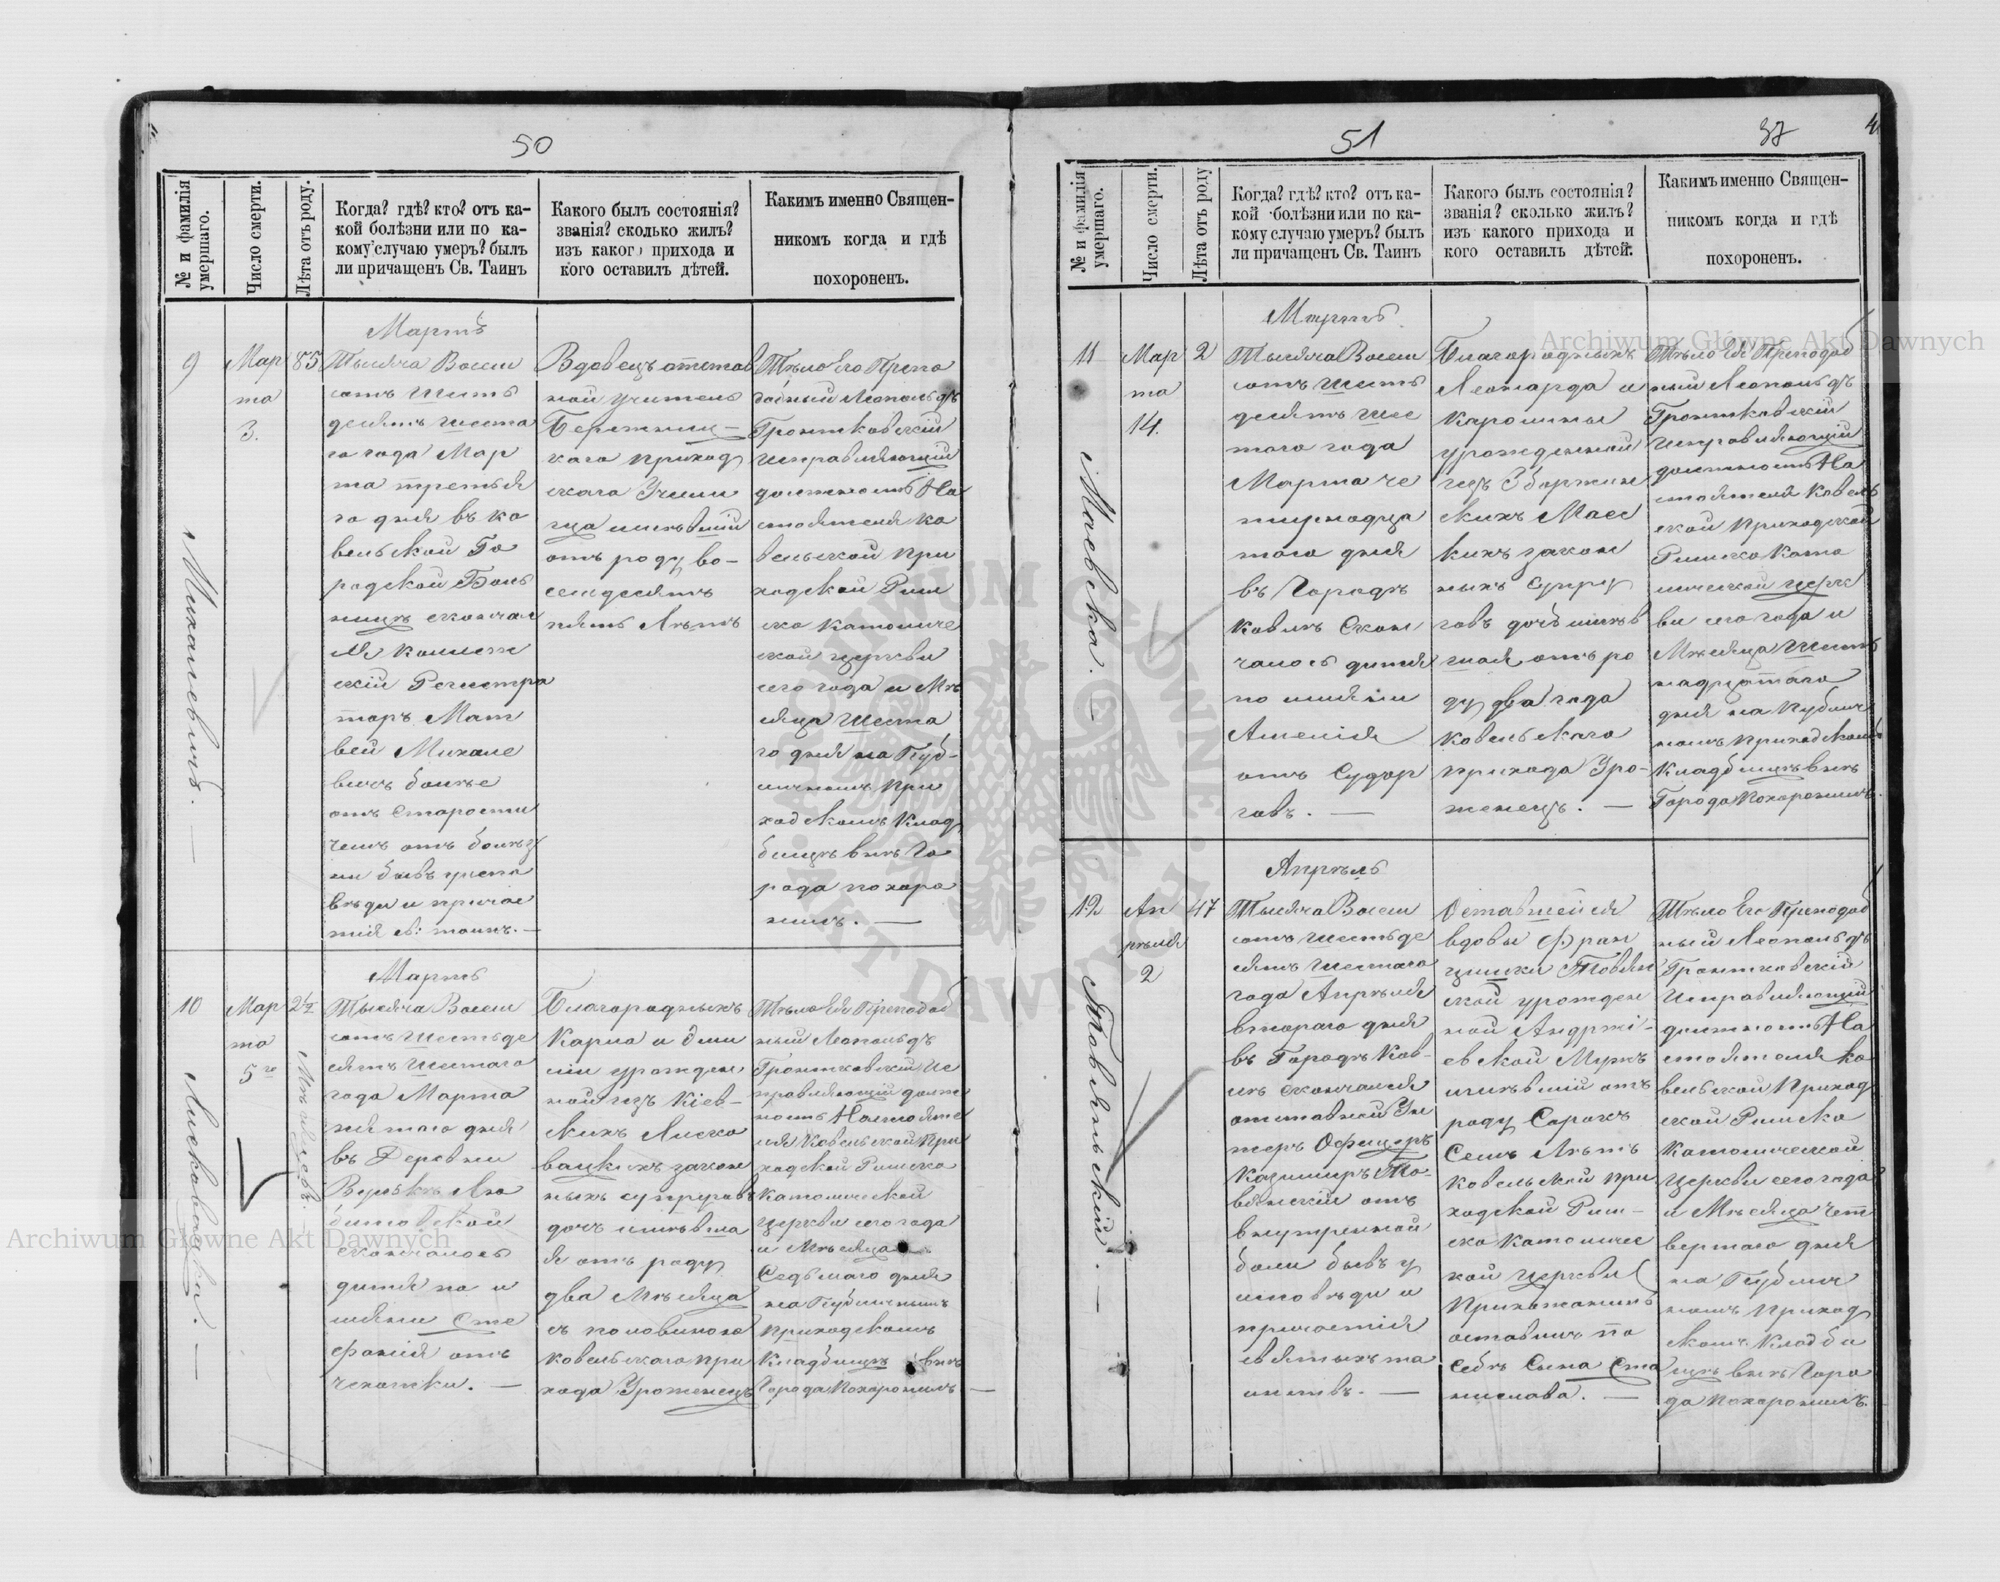 50
№ и фамилія умершаго.
Число смерти.
Лѣта отъ роду.
Когда? гдѣ? кто? отъ ка-
кой болѣзни или по ка-
кому случаю умеръ? былъ
ли причащенъ Св. Таинъ
Какого былъ состоянія?
званія? сколько жилъ?
изъ какого прихода и
кого оставилъ дѣтей.
Какимъ именно Священ-
никомъ когда и гдѣ
похороненъ.
9
Михалевичъ. —
Мар
та
3.
85
Мартъ
Тысяча Восем
сотъ Шесть
десятъ шеста
го года Мар
та третья
го дня въ Ко
вельской Го
родской Боль
ницѣ скончал
ся Коллеж
скій Регистра
торъ Мат
вей Михале
вичъ болѣе
отъ Старости
чемъ отъ болѣз
ни бывъ у испо
вѣди и прича
стія св: таинъ. —
Вдовецъ отстав
ной учитель
Бережниц—
каго приход
скаго Учили
ща имѣвшій
отъ роду во-
семдесятъ
пять Лѣтъ
Тѣло Его Препо
добный Леопольдъ
Гронтковскій
Исправляющій
должность На
стоятеля Ко
вельской При
ходской Рим
ско Католиче
ской Церкви
сего года и Мѣ
сяца Шеста
го дня на Пуб-
личномъ При
ходскомъ Клад
бищѣ внѣ Го
рода похоро
нилъ. —
10
Лисковацка. —
Мар
та
5го
2½
Мѣсяцевъ. —
Мартъ
Тысяча Восем
сотъ Шестьде
сятъ Шестаго
года Марта
пятаго дня
въ Деревни
Вербкѣ Лю
битовской
скончалось
дитя по и
мяни Сте
фанія отъ
чахотки. —
Благородныхъ
Карла и Эми
ліи урожден
ной изъ Кіев-
скихъ Лиско
вацкихъ закон
ныхъ супруговъ
дочь имѣвша
я отъ роду
два Мѣсяца
съ половиною
Ковельскаго при
хода Уроженецъ
Тѣло Ея Преподоб
ный Леопольдъ
Гронтковскій Ис
правляющій долж
ность Настояте
ля Ковельской При
ходской Римско
Католической
Церкви сего года
и Мѣсяца
Седьмаго дня
на Публичномъ
Приходскомъ
Кладбищѣ внѣ
Города Похоронилъ —
51
37
№ и фамилія умершаго.
Число смерти.
Лѣта отъ роду
Когда? гдѣ? кто? отъ ка-
кой болѣзни или по ка-
кому случаю умеръ? былъ
ли причащенъ Св. Таинъ
Какого былъ состоянія?
званія? сколько жилъ?
изъ какого прихода и
кого оставилъ дѣтей.
Какимъ именно Священ-
никомъ когда и гдѣ
похороненъ.
11
Маевска. —
Мар
та
14.
2
Мартъ
Тысяча Восем
сотъ Шесть
десятъ шес
таго года
Марта че
тырнадца
таго дня
въ Городѣ
Ковлѣ Скон
чалось дитя
по имяни
Амелія
отъ Судор
говъ. —
Благородныхъ
Леонарда и
Каролины
урожденной
изъ Зборжин
скихъ Маев
скихъ закон
ныхъ Супру
говъ дочь имѣв
шая отъ ро
ду два года
Ковельскаго
прихода Уро-
женецъ. —
Тѣло Ея Преподоб
ный Леопольдъ
Гронтковскій
Исправляющій
должность На
стоятеля Ковель
ской Приходской
Римско Като
лической Церк
ви сего года и
Мѣсяца Шест
надцатаго
дня на Публич
номъ Приходскомъ
Кладбищѣ внѣ
Города Похоронилъ.
12
Товянскій. —
Ап
рѣля
2
47
Апрѣль
Тысяча Восем
сотъ Шестьде
сятъ Шестаго
года Апрѣля
втораго дня
въ Городѣ Ков-
лѣ скончался
отставной Ун
теръ Офицеръ
Казимиръ То-
вянскій отъ
внутренной
боли бывъ у
исповѣди и
причастія
святыхъ та
инствъ. —
Оставшейся
вдовы Фран
цишки Товян
ской урожден
ной Андржі-
евской Мужъ
имѣвшій отъ
роду Сорокъ
Семь Лѣтъ
Ковельской При
ходской Рим—
ско Католичес
кой Церкви
Прихожанинъ
оставилъ по
себѣ Сына Ста
нислава. —
Тѣло Его Преподоб
ный Леопольдъ
Гронтковскій
Исправляющій
должность На
стоятеля Ко
вельской Приход
ской Римско
Католической
Церкви сего года
и Мѣсяца Чет
вертаго дня
на Публич
номъ Приход
скомъ Кладби
щѣ внѣ Горо
да Похоронилъ.
Archiwum Główne Akt Dawnych
Archiwum Główne Akt Dawnych
ARCHIWUM GŁÓWNE AKT DAWNYCH